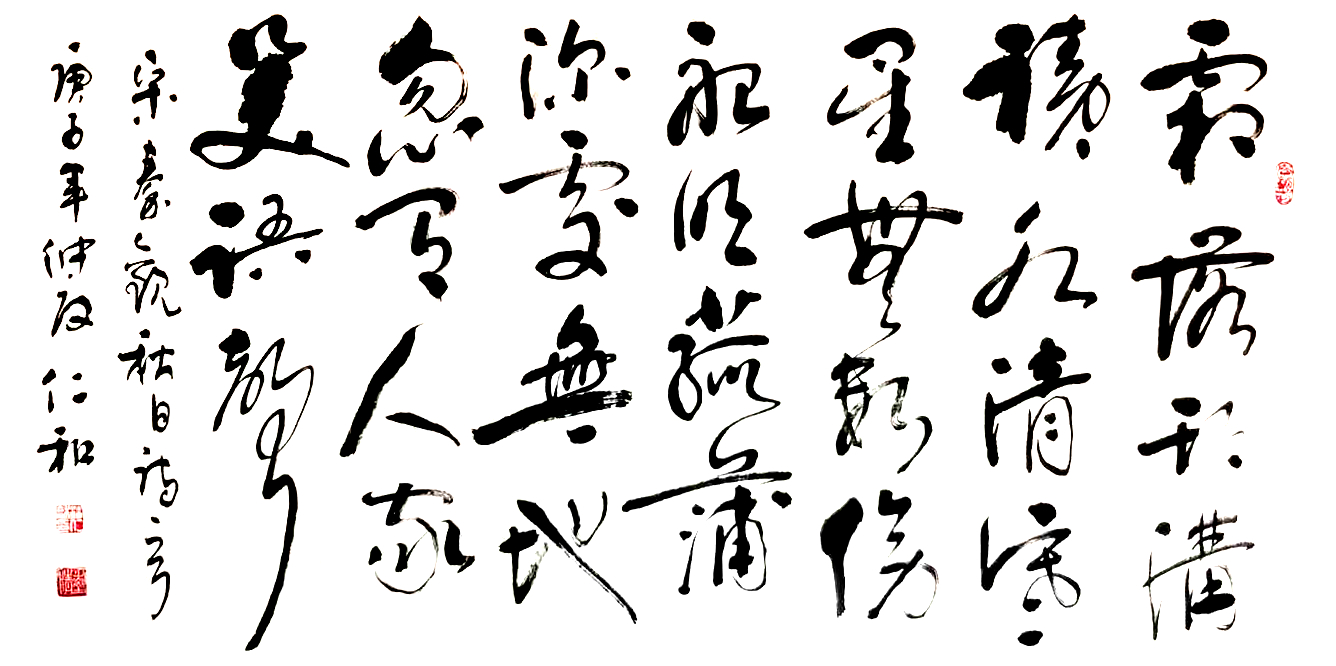 霜落邗溝
積水清寒
星無數傍
船明菰蒲
深處無地
忽有人家
笑語聲
宋秦觀秋日詩一首
庚子年仲夏仁和